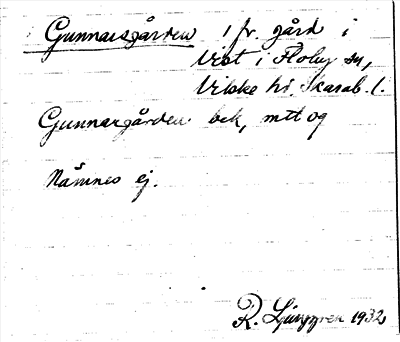 Gunnarsgården 1 fr. gård i
Vest i Floby sn,
Vilske hd. Skarab. l.
Gunnargården. bek, mtl og
Nämnes ej.
R. Ljunggren 1932